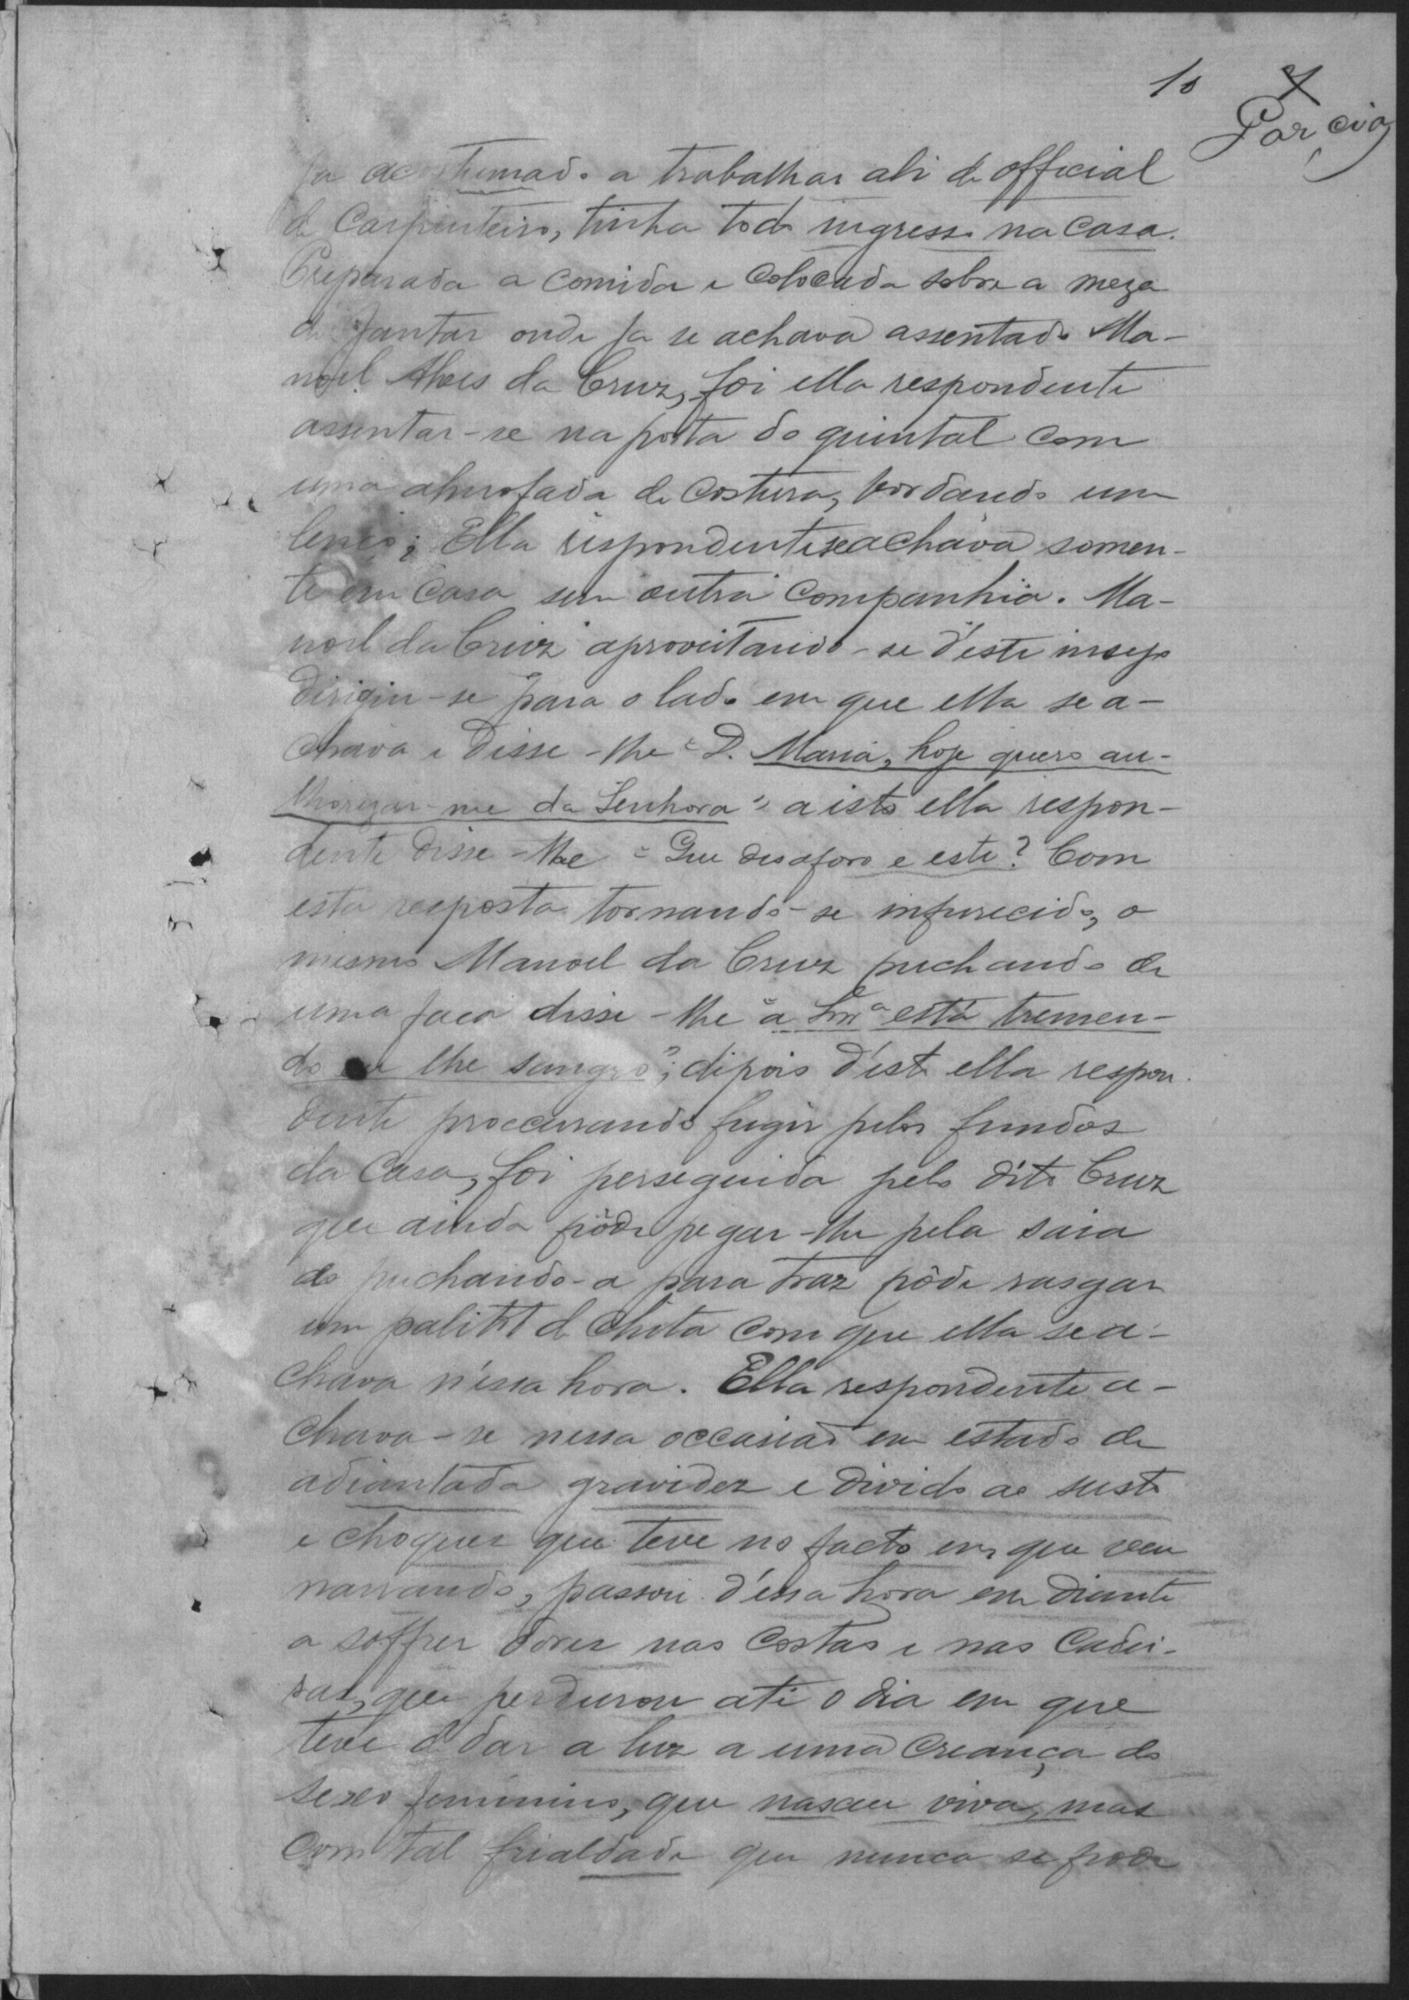 10
Garcia
ja acostumado a trabalhar ahi de official
de Carpinteiro, tinha todo ingresso na casa.
Preparada a comida e collocada sobre a meza
de jantar onde ja se achava assentado Ma-
noel Alves da Cruz, foi ella respondente
assentar-se na porta do quintal com
uma almofada de costura, bordando um
lenço; Ella respondente se achava somen-
te em casa sem outra companhia. Ma-
noel da Cruz aproveitando-se d'este
dirigiu-se para o lado em que ella se a-
chava e disse-lhe "D. Maria, hoje quero
me da Senhora" a isto ella respon-
dente disse-lhe = Que desaforo e este? Com
esta resposta tornando-se infurecido, o
mesmo Manoel da Cruz puchando de
uma faca disse-lhe "a Snrª está tremen-
do eu lhe sangro"; dipois d'isto ella respon-
dente proccurando fugir pelos fundos
da casa, foi perseguida pelo dito Cruz
que ainda pôde pegar-lhe pela saia
do puchando-a para traz pôde rasgar
um palitot de chita com que ella se a-
chava n'essa hora. Ella respondente a-
chava-se nessa occasião em estado de
adiantada gravidez e divido ao susto
e choques que teve no facto em que vem
narrando, passou d'essa hora em diante
a soffrer dores nas costas e nas Cadei-
ras, que perdurou até o dia em que
teve de dar a luz a uma creança do
sexo feminino, que nasceu viva, mas
com tal frialdade que nunca se pode